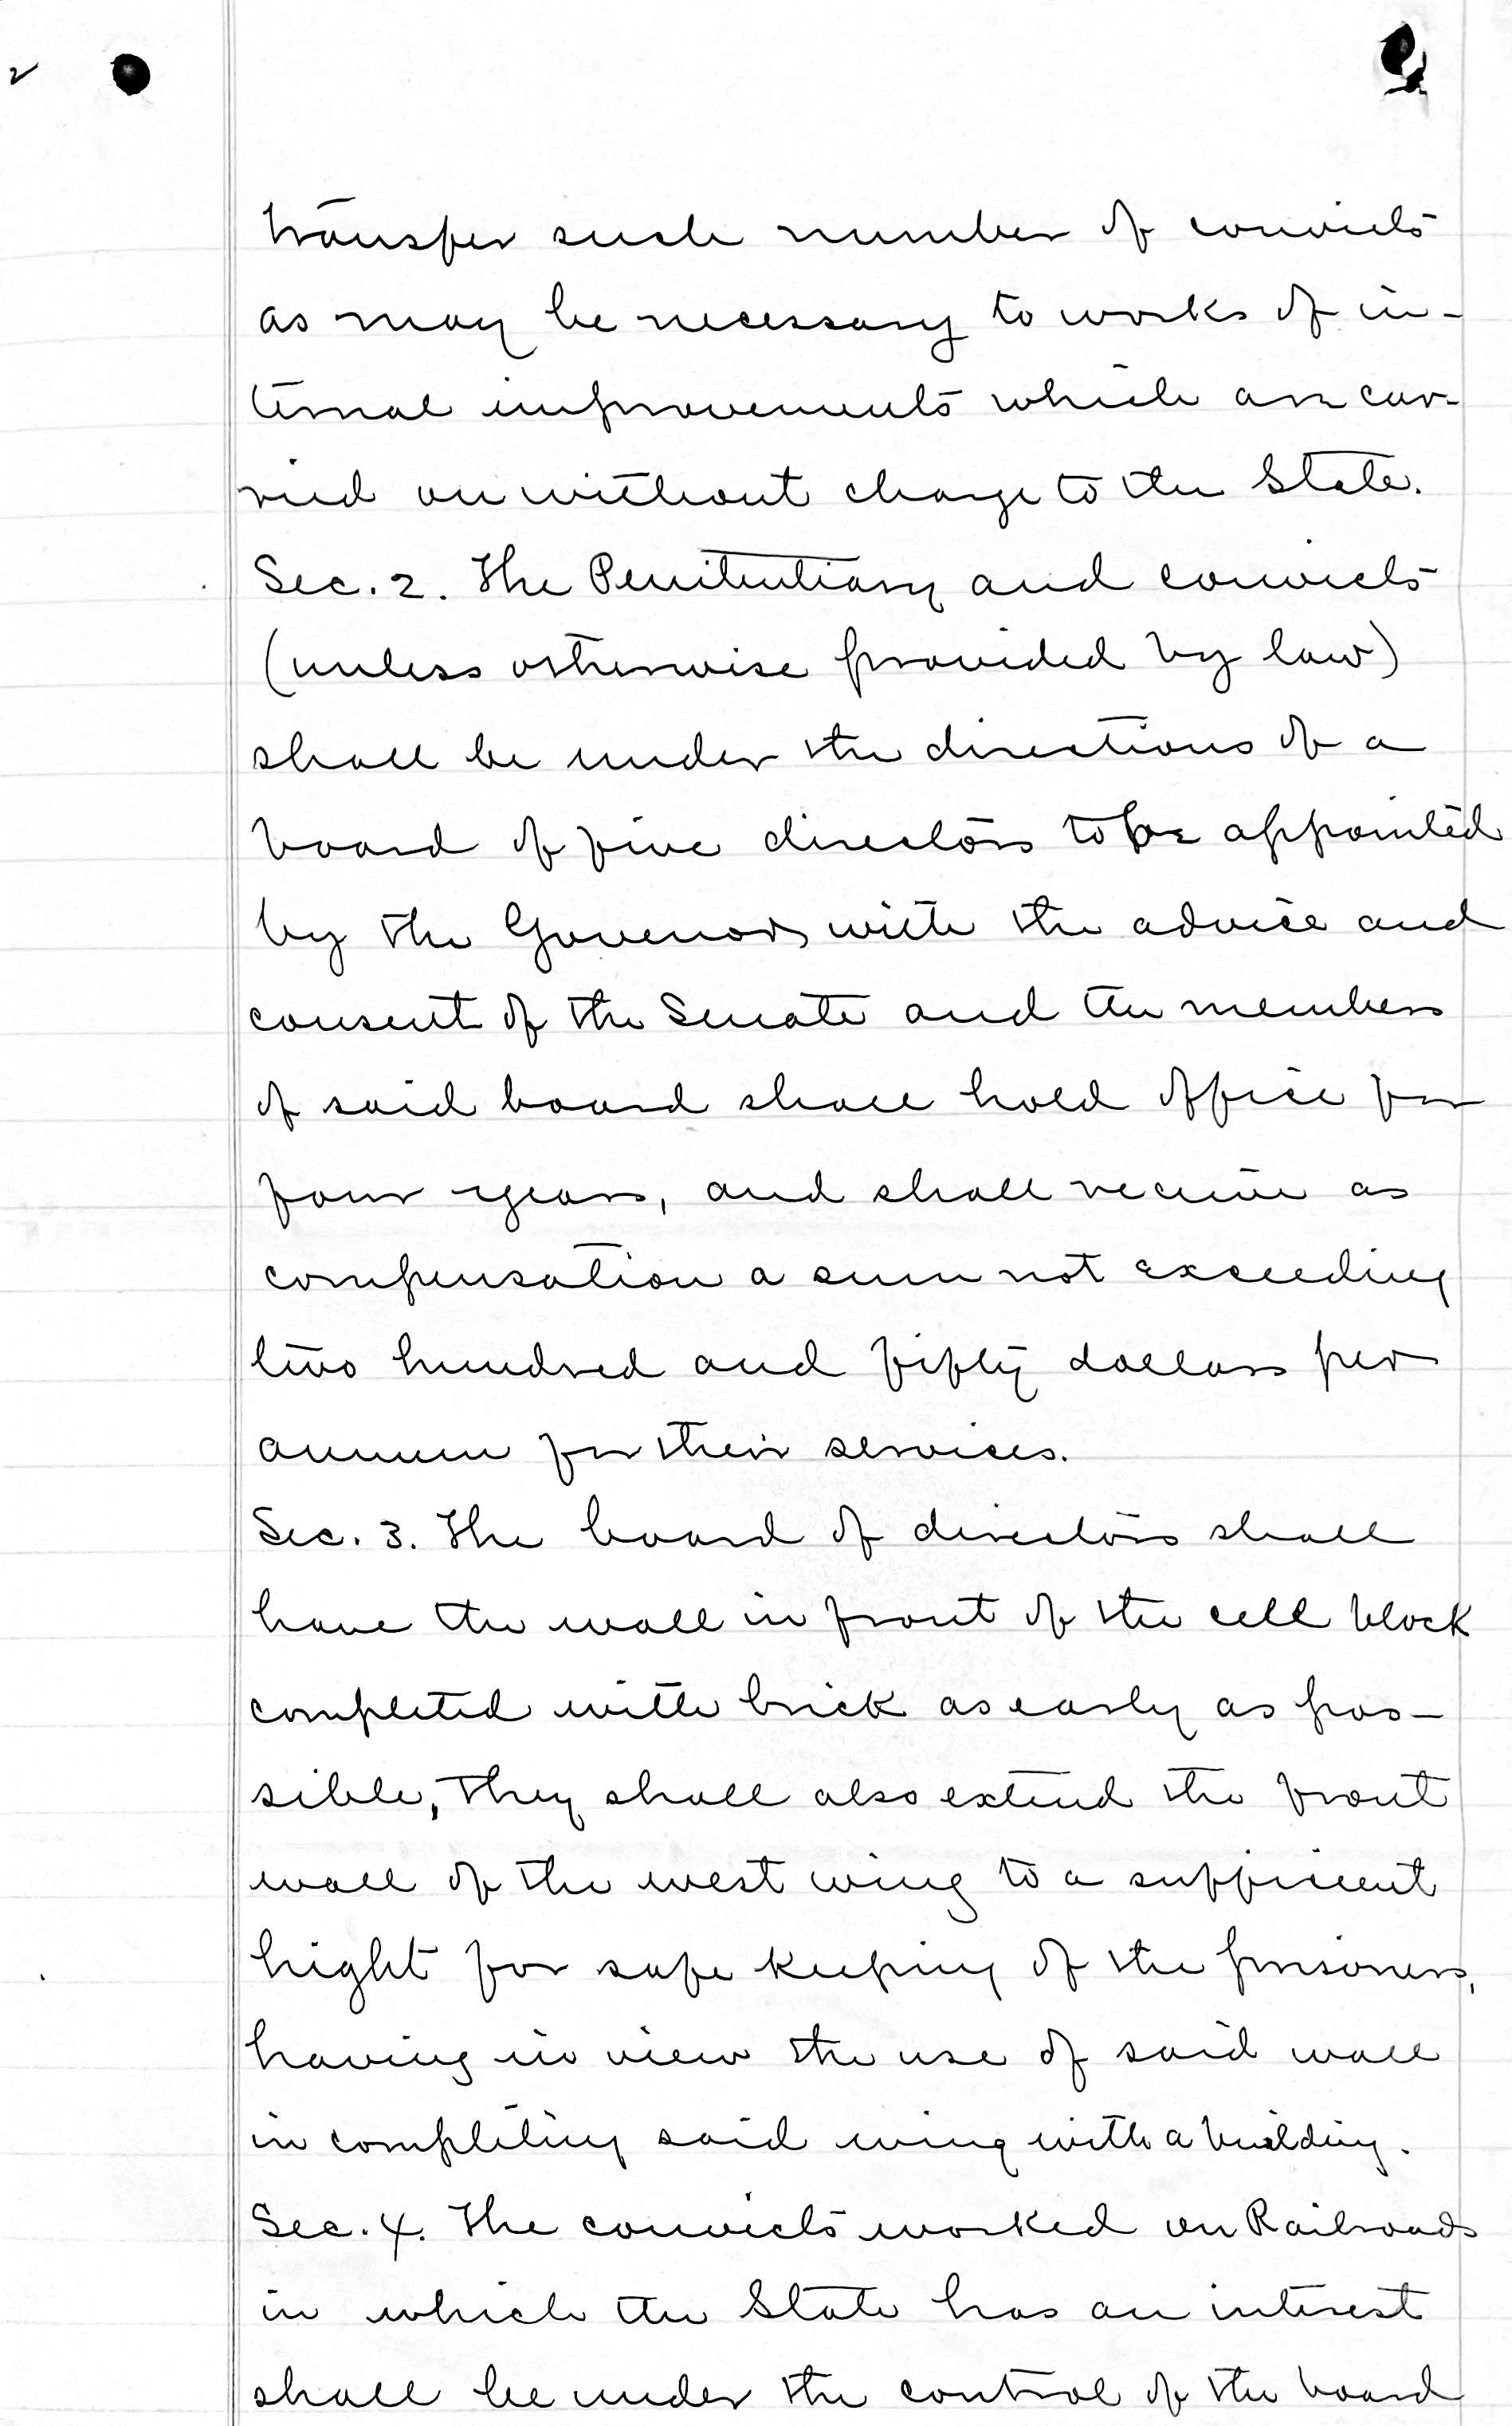 transfer such number of convicts
as may be necessary to works of in-
ternal improvements which are car-
ried on without charge to the State.
Sec. 2. The Penitentiary and convicts
(unless otherwise provided by law)
shall be under the directions of a
board of five directors to be appointed
by the Governor with the advice and
consent of the Senate and the members
of said board shall hold office for
four years, and shall receive as
compensation a sum not exceeding
two hundred and fifty dollars per
annum for their services.
Sec. 3. The board of directors shall
have the wall in front of the cell block
completed with brick as early as pos-
sible, They shall also extend the front
wall of the west wing to a sufficient
hight for safe keeping of the prisoners,
having in view the use of said wall
in completing said wing with a building.
Sec. 4. The convicts worked on Railroads
in which the State has an interest
shall be under the control of the board